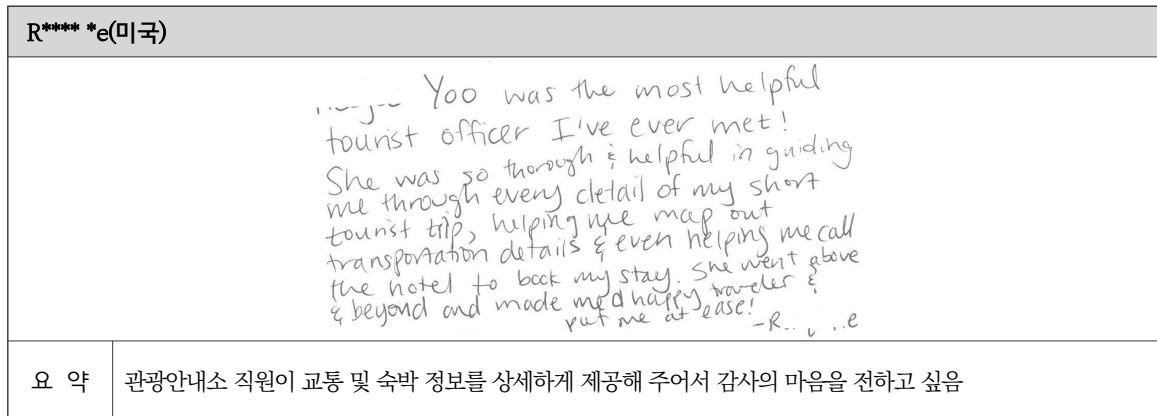 R***** *e(미국)
Yoo was the most helpful
tourist officer I've ever met!
She was so thorough & helpful in guiding
me through every detail of my short
tourist trip, helping me map out
transportation details & even helping me call
the hotel to book my stay. She went above
& beyond and made me a happy traveler &
put me at ease!
-R... e
요 약
관광안내소 직원이 교통 및 숙박 정보를 상세하게 제공해 주어서 감사의 마음을 전하고 싶음